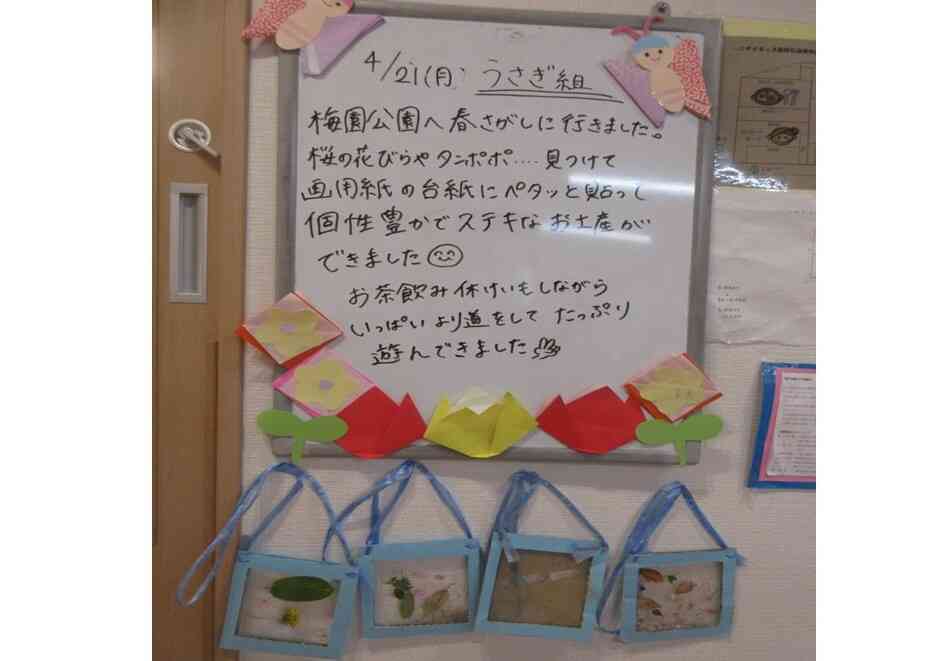 4/21(月) うさぎ組
梅園公園へ春さがしに行きました。
桜の花びらやタンポポ....見つけて
画用紙の台紙にペタッと貼って
個性豊かでステキなお土産が
できました
お茶飲み休けいもしながら
いっぱいより道をして たっぷり
遊んできました